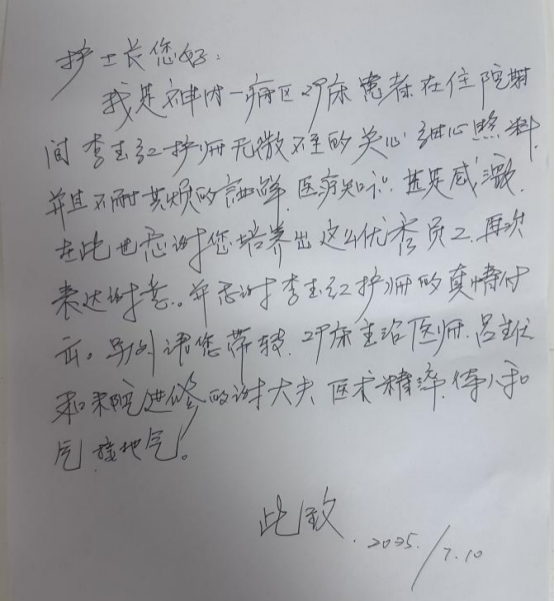 护士长您好：
我是神内一病区29床患者在住院期
间李玉红护师无微不至的关心细心照料,
并且不耐其烦的讲解.医病知识.甚是感激.
在此也感谢您培养出这么优秀员工.再次
表达谢意。并感谢李玉红护师的真情付
出。另外请您带转.29床主治医师.吕主任
和来院进修的谢大夫医术精湛.待人和
气接地气。
此致.2025./7.10